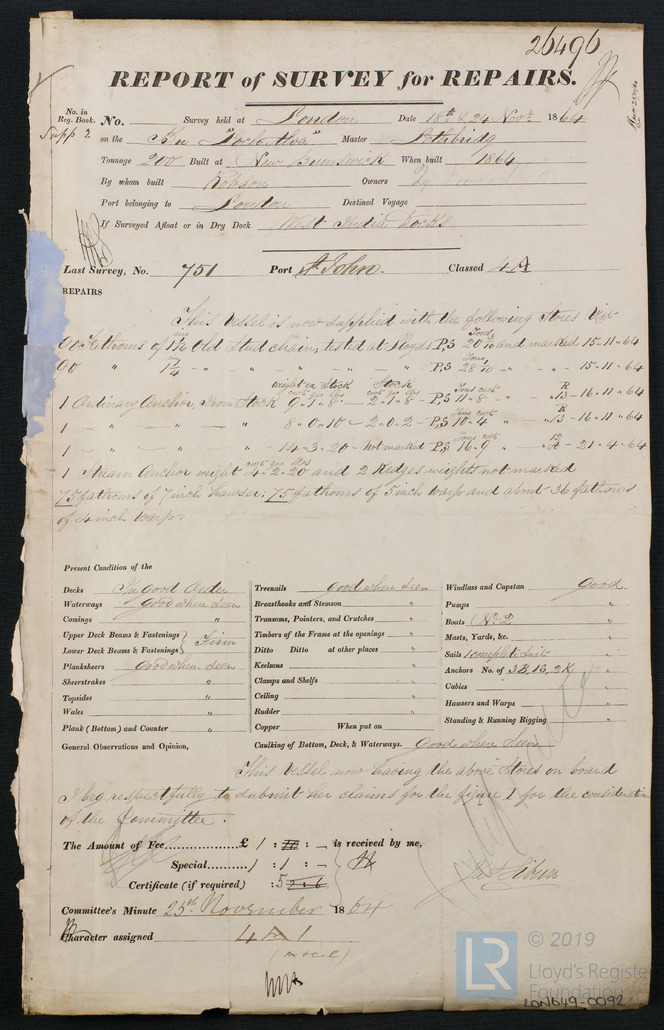 26496
REPORT of SURVEY for REPAIRS.
No. in Reg. Book. No. Survey held at London Date 18th & 24 Novr. 1864
Supp 2 on the Bn "Loch Alva" Master
Tonnage 200 Built at New Brunswick When built 1864
By whom built Robson Owners
Port belonging to London Destined Voyage
If Surveyed Afloat or in Dry Dock West India Docks
Last Survey, No. 751 Port St John. Classed 4A
REPAIRS
This Vessel is now supplied with the following Stores Viz
90 Fathoms of 1 1/16 Old Stud chain, tested at Lloyds P,S 20 5/10 Tons and marked 15-11-64
90 " 1 1/4 " " " " " P,S 28 Tons " " 15-11-64
weight ex Stock Stock
1 Ordinary Anchor Iron Stock 9.1.8 - 2.1.8 - P,S 11.8 Tons cwts " R 13-16-11-64
1 " " " " 8.0.10 - 2.0.2 - P,S 10.4 Tons cwts " R 13-16-11-64
1 " " " " 14-3-20 - Not marked P,S 16.9 Tons cwts " - 21-4-64
1 Stream Anchor weight 4-2-20 cwts qrs lbs and 2 Kedges weights not marked
75 fathoms of 7 inch hawser; 75 fathoms of 5 inch warp and about 36 fathoms
of 4 inch warp.
Present Condition of the
Decks In good Order
Waterways good when seen
Comings "
Upper Deck Beams & Fastenings
Lower Deck Beams & Fastenings } Firm
Planksheers Good when seen
Sheerstrakes "
Topsides "
Wales "
Plank (Bottom) and Counter "
Treenails good when seen
Breasthooks and Stemson "
Transoms, Pointers, and Crutches "
Timbers of the Frame at the openings "
Ditto Ditto at other places "
Keelsons "
Clamps and Shelfs "
Ceiling "
Rudder "
Copper When put on
Caulking of Bottom, Deck, & Waterways. Good when seen
Windlass and Capstan good
Pumps "
Boats No. 2 "
Masts, Yards, &c. "
Sails 1 complete Suit "
Anchors No. of 3B, 1S, 2K "
Cables "
Hawsers and Warps "
Standing & Running Rigging "
General Observations and Opinion,
This Vessel now having the above Stores on board
I beg respectfully to submit her claims for the figure 1 for the consideration
of the Committee.
The Amount of Fee £ 1 : : - is received by me,
Special 1 : 1 : -
Certificate (if required) : 5
Committee's Minute 25th November 1864
Character assigned 4 A 1
LR
© 2019
Lloyd's Register
Foundation
LON649-0092